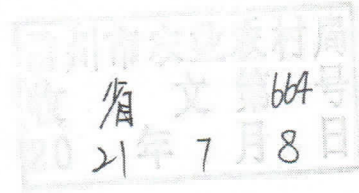 州市农业农村局
省文第664号
2021年7月8日